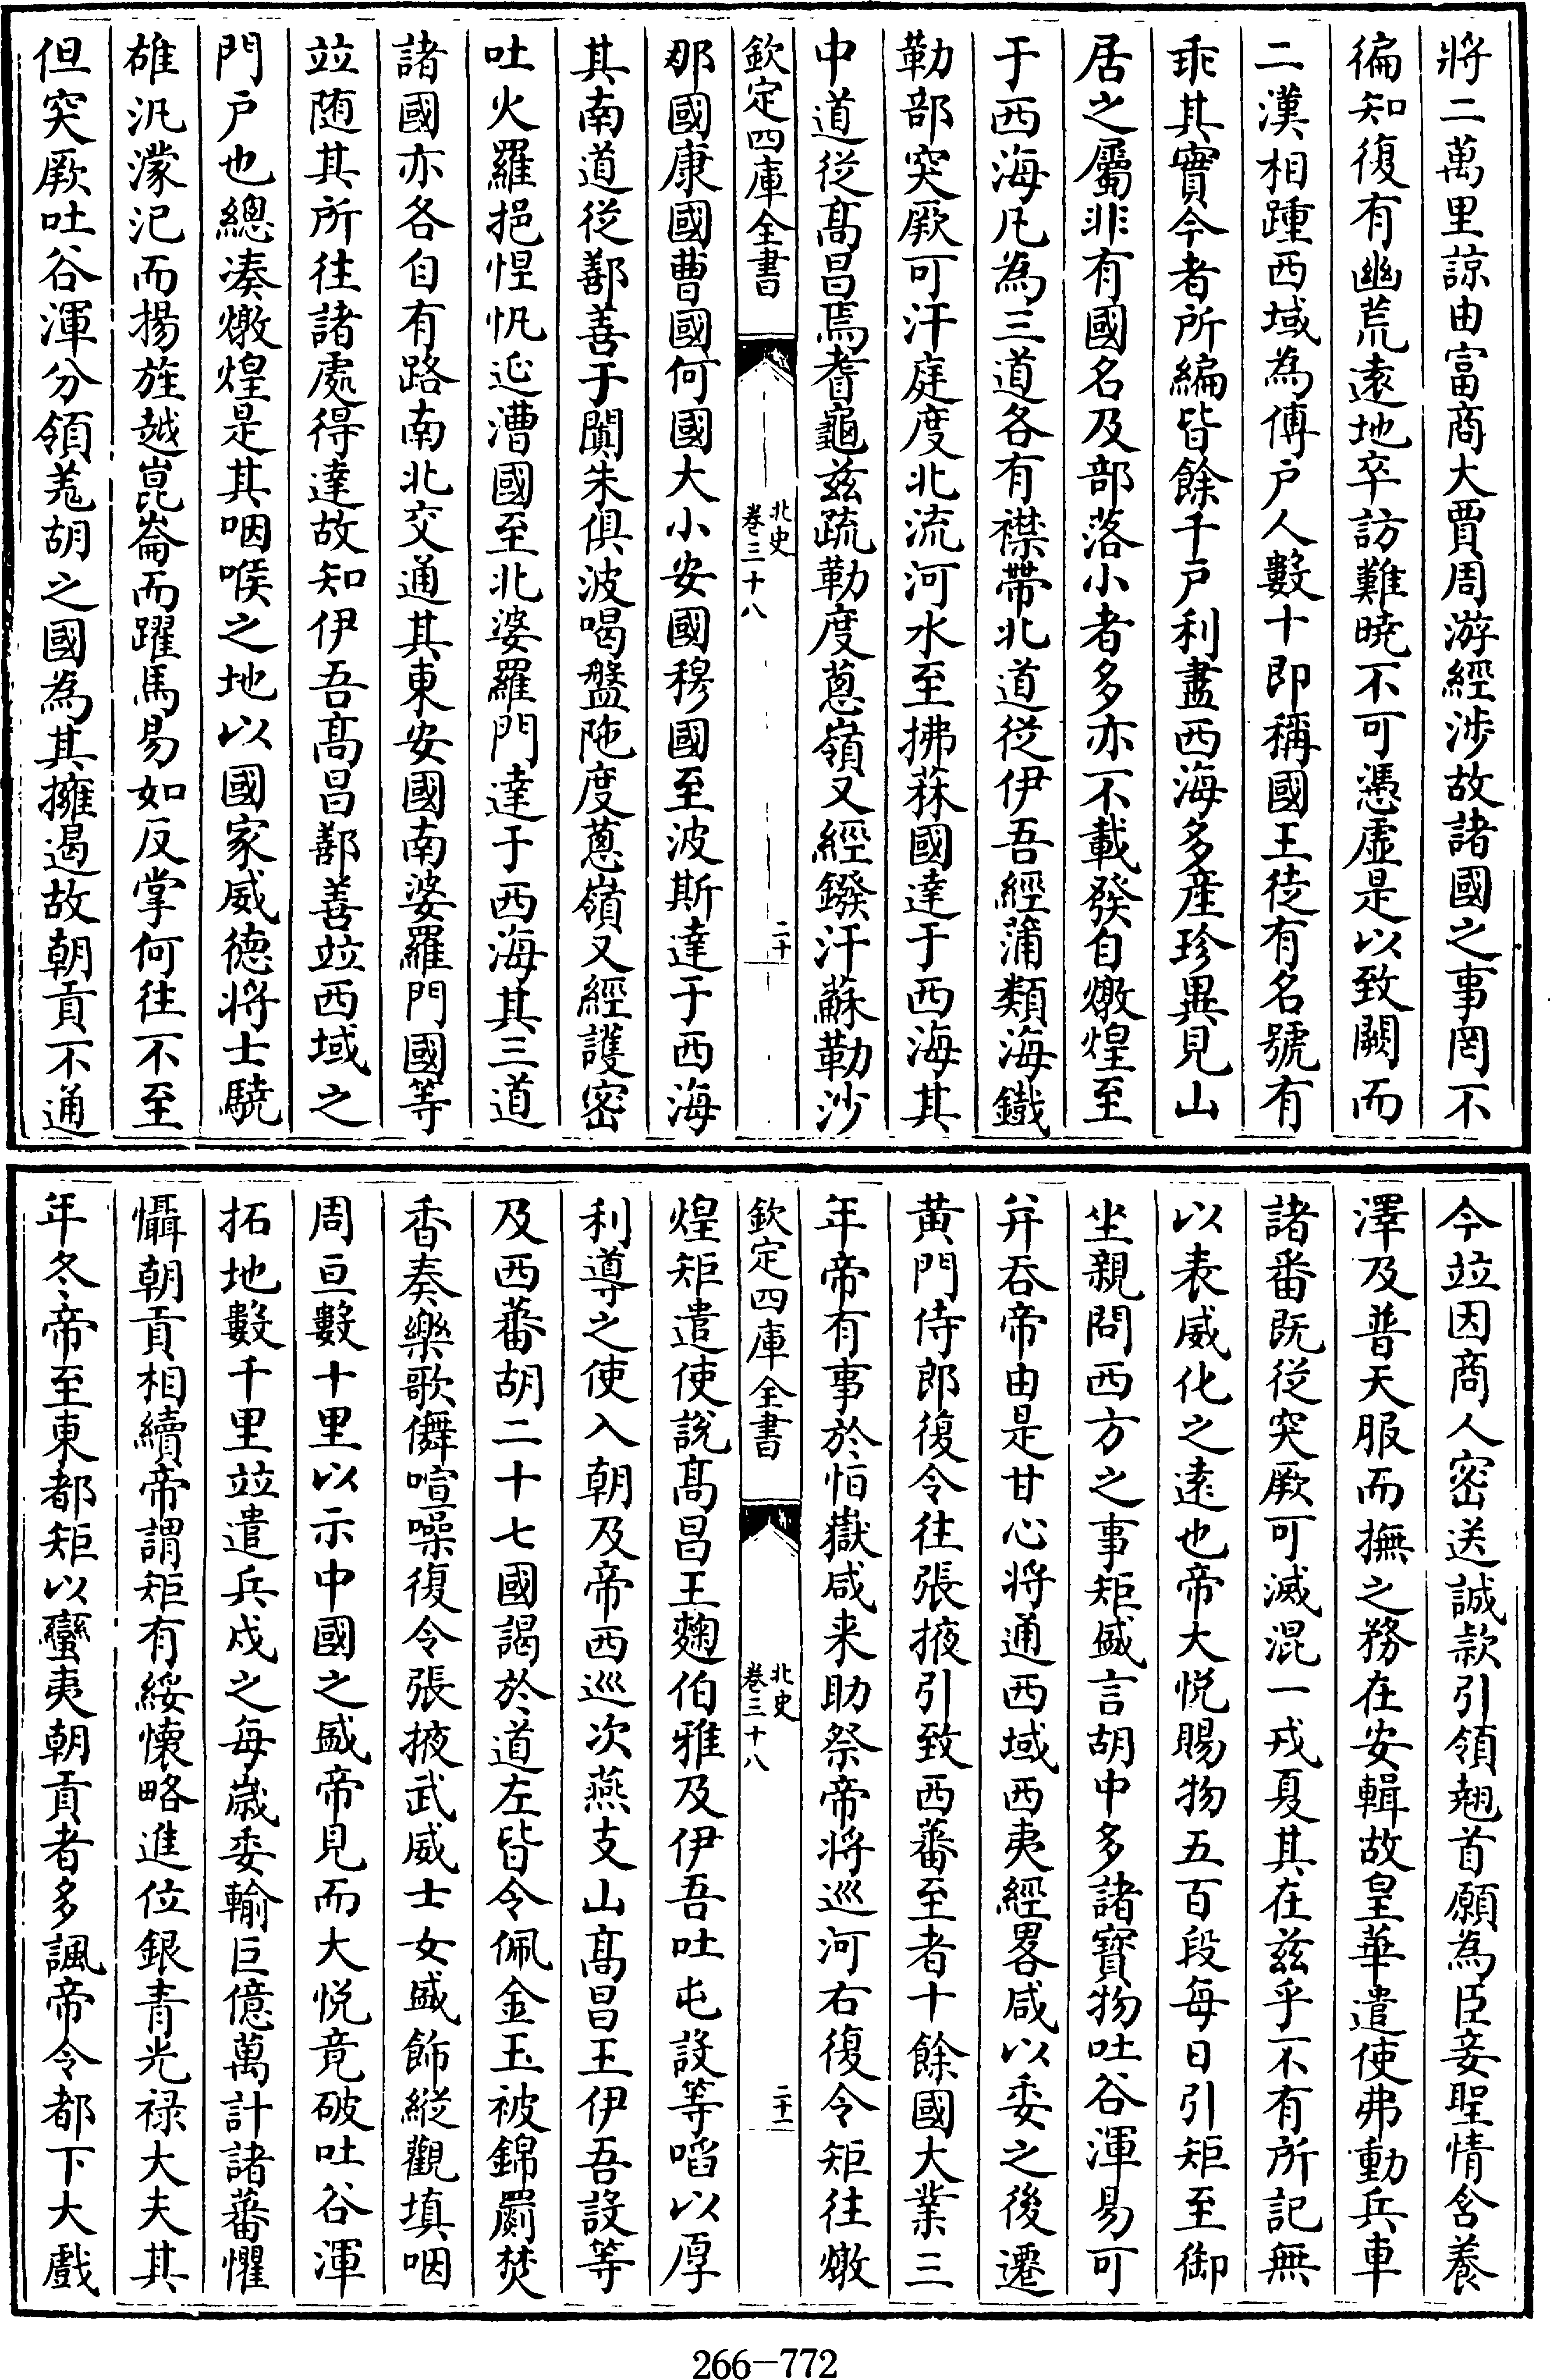 將二萬里諒由富商大賈周游經涉故諸國之事罔不
徧知復有幽荒遠地卒訪難曉不可憑虛是以致闕而
二漢相踵西域為傳户人數十即稱國王徒有名號有
乖其實今者所編皆餘千户利盡西海多產珍異見山
居之屬非有國名及部落小者多亦不載發自燉煌至
于西海凡為三道各有襟帶北道從伊吾經蒲類海鐵
勒部突厥可汗庭度北流河水至拂菻國達于西海其
中道從髙昌焉耆龜兹疏勒度蔥嶺又經鏺汗蘇勒沙
欽定四庫全書
北史
卷三十八
二十
那國康國曹國何國大小安國穆國至波斯達于西海
其南道從鄯善于闐朱俱波喝盤陁度蔥嶺又經護密
吐火羅挹怛忛延漕國至北婆羅門達于西海其三道
諸國亦各自有路南北交通其東安國南婆羅門國等
竝随其所往諸處得達故知伊吾髙昌鄯善竝西域之
門户也總凑燉煌是其咽喉之地以國家威德将士驍
雄汎濛汜而揚旌越崑崙而躍馬易如反掌何往不至
但突厥吐谷渾分領羌胡之國為其擁遏故朝貢不通
今竝因商人密送誠款引領翹首願為臣妾聖情含養
澤及普天服而撫之務在安輯故皇華遣使弗動兵車
諸番既從突厥可滅混一戎夏其在兹乎不有所記無
以表威化之遠也帝大悦賜物五百段每日引矩至御
坐親問西方之事矩盛言胡中多諸寶物吐谷渾易可
并吞帝由是甘心将通西域西夷經畧咸以委之後遷
黄門侍郎復令往張掖引致西蕃至者十餘國大業三
年帝有事於恒嶽咸来助祭帝将巡河右復令矩往燉
欽定四庫全書
北史
卷三十八
二十一
煌矩遣使說髙昌王麴伯雅及伊吾吐屯設等啗以厚
利導之使入朝及帝西巡次燕支山髙昌王伊吾設等
及西蕃胡二十七國謁於道左皆令佩金玉被錦罽焚
香奏樂歌儛喧噪復令張掖武威士女盛飾縱觀填咽
周亘數十里以示中國之盛帝見而大悦竟破吐谷渾
拓地數千里竝遣兵戍之每歲委輸巨億萬計諸蕃懼
懾朝貢相續帝謂矩有綏懐略進位銀青光禄大夫其
年冬帝至東都矩以蠻夷朝貢者多諷帝令都下大戲
266-772